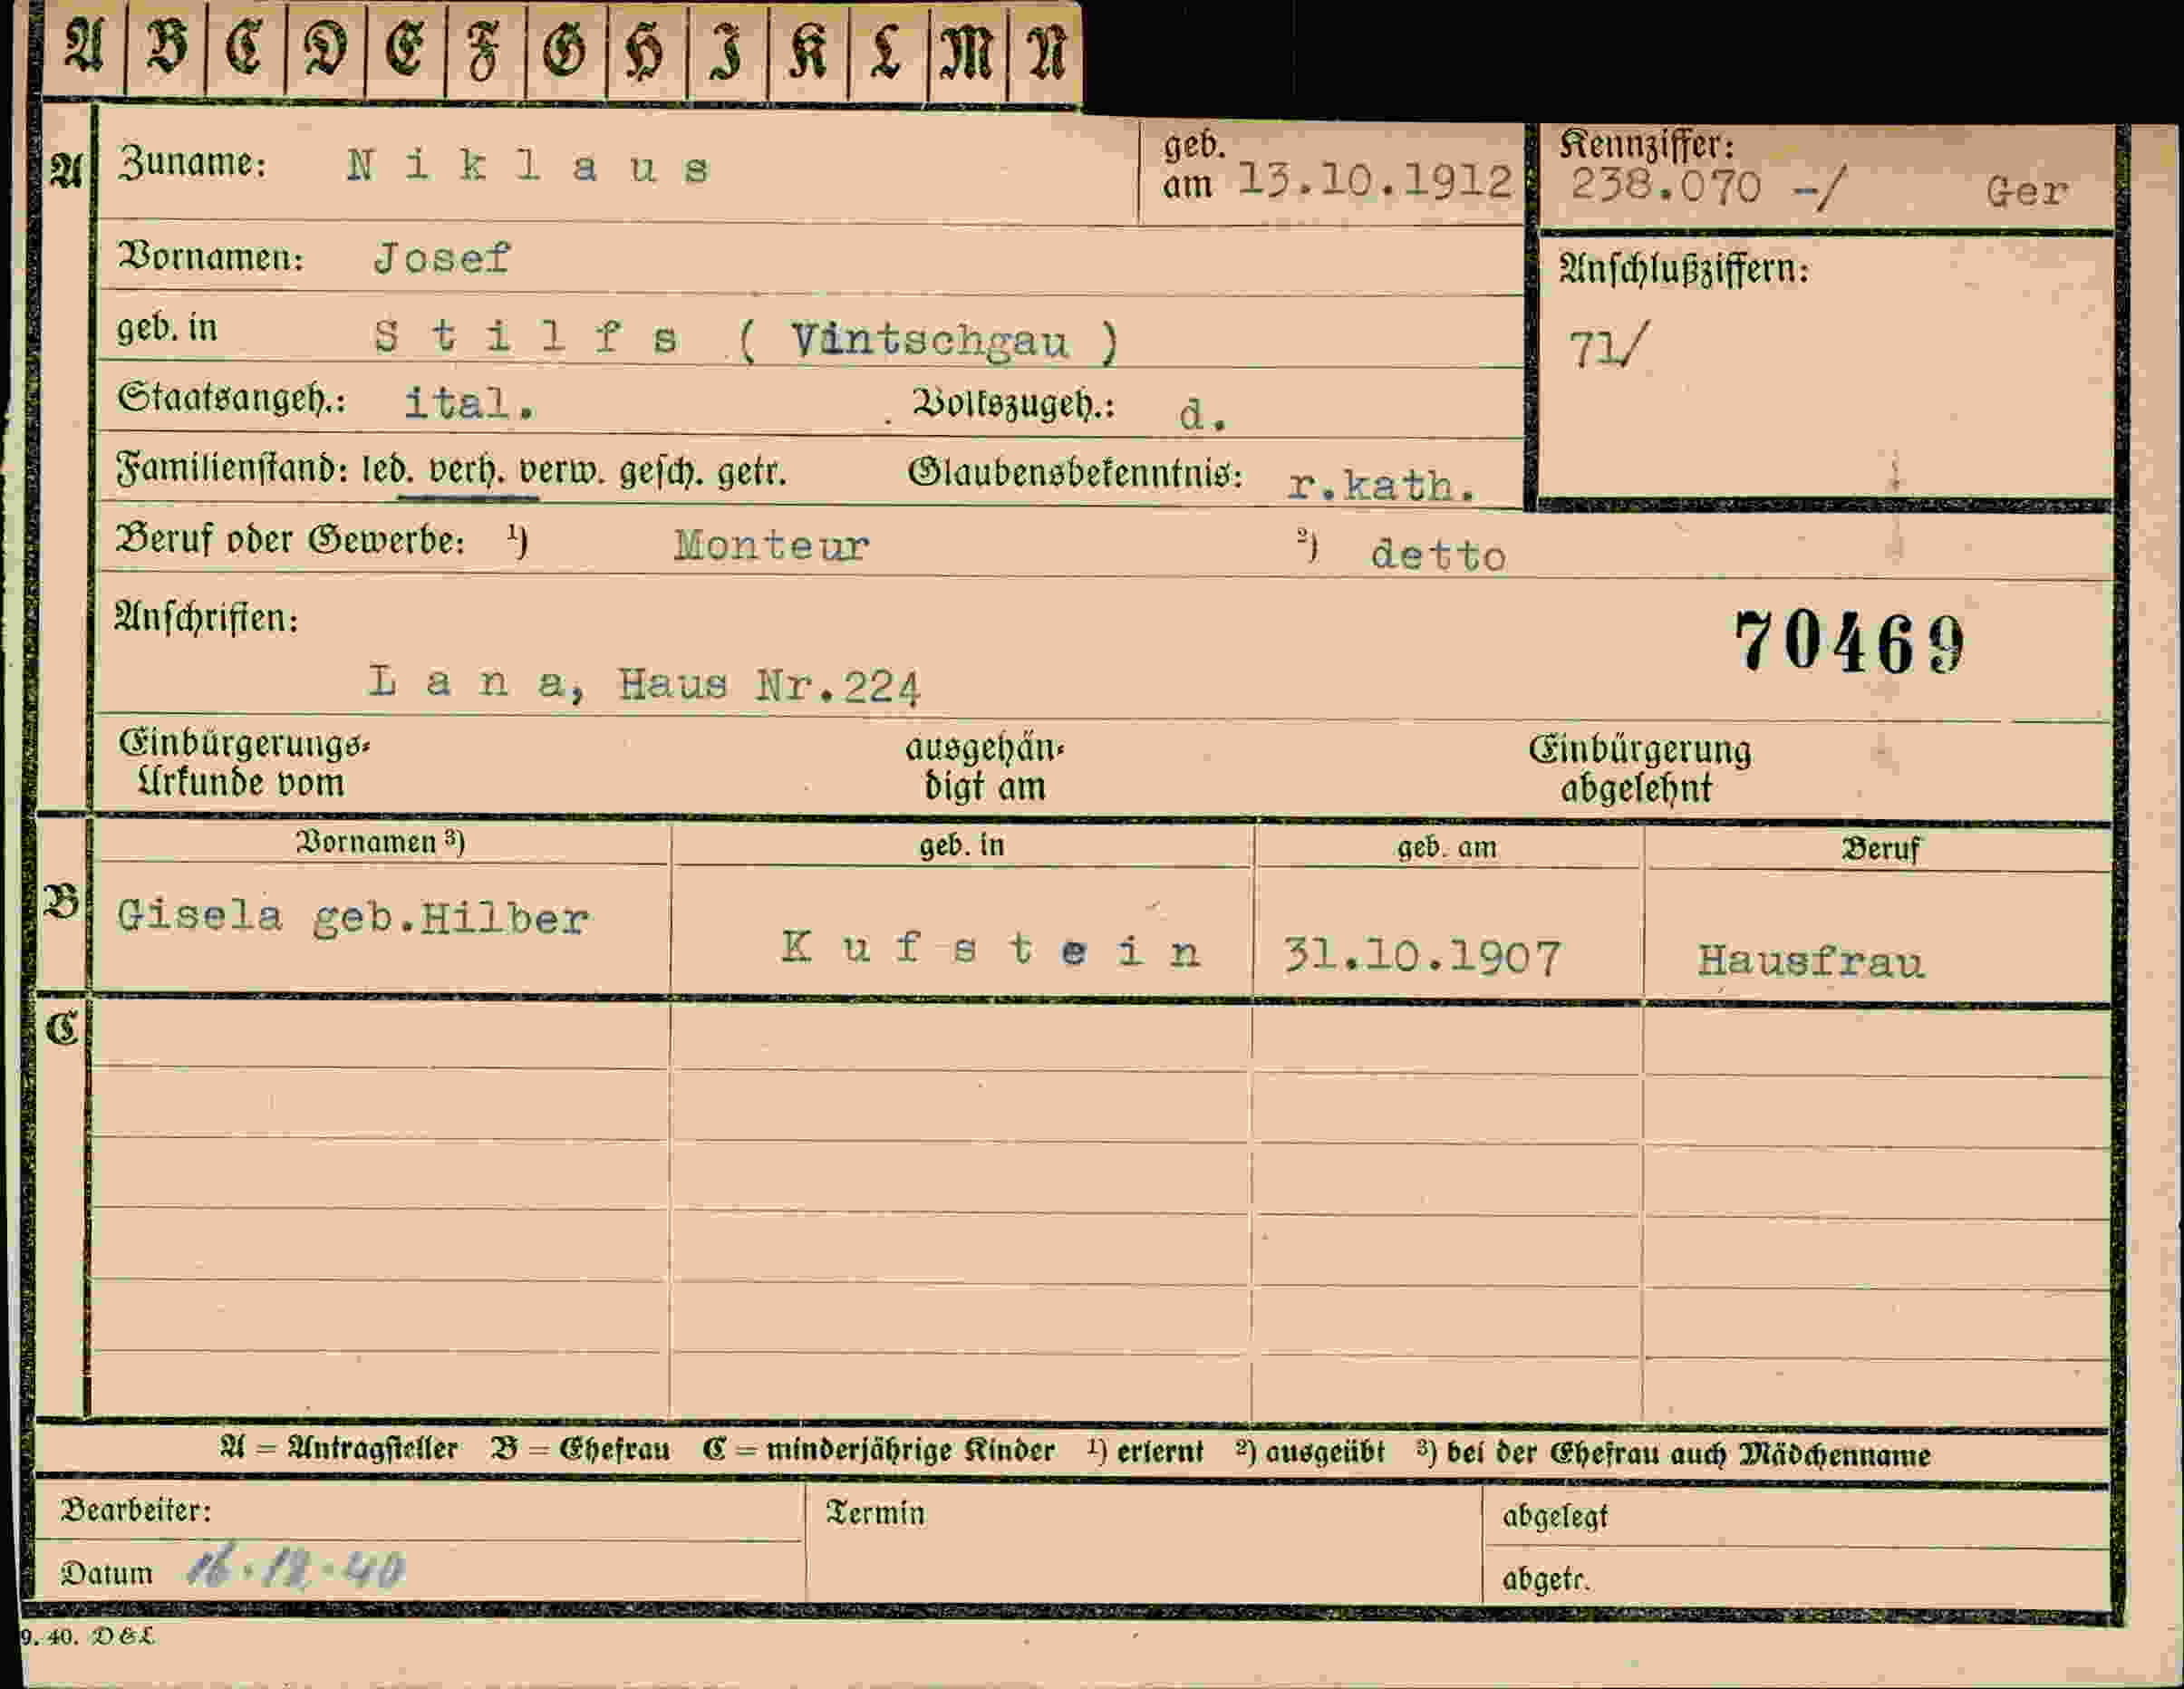 A B C D E F G H I K L M N
A Zuname: Niklaus geb. am 13.10.1912 Kennziffer: 238.070 -/ Ger
Vornamen: Josef Anschlußziffern:
geb. in Stilfs ( Vintschgau ) 71/
Staatsangeh.: ital. Volkszugeh.: d.
Familienstand: led. verh. verw. gesch. getr. Glaubensbekenntnis: r.kath.
Beruf oder Gewerbe: ¹) Monteur ²) detto
Anschriften: 70469
Lana, Haus Nr.224
Einbürgerungs- ausgehän- Einbürgerung
Urkunde vom digt am abgelehnt
Vornamen ³) geb. in geb. am Beruf
B Gisela geb.Hilber Kufstein 31.10.1907 Hausfrau
C
A = Antragsteller B = Ehefrau C = minderjährige Kinder ¹) erlernt ²) ausgeübt ³) bei der Ehefrau auch Mädchenname
Bearbeiter: Termin abgelegt
Datum 16.12.40 abgetr.
9. 40. D & L